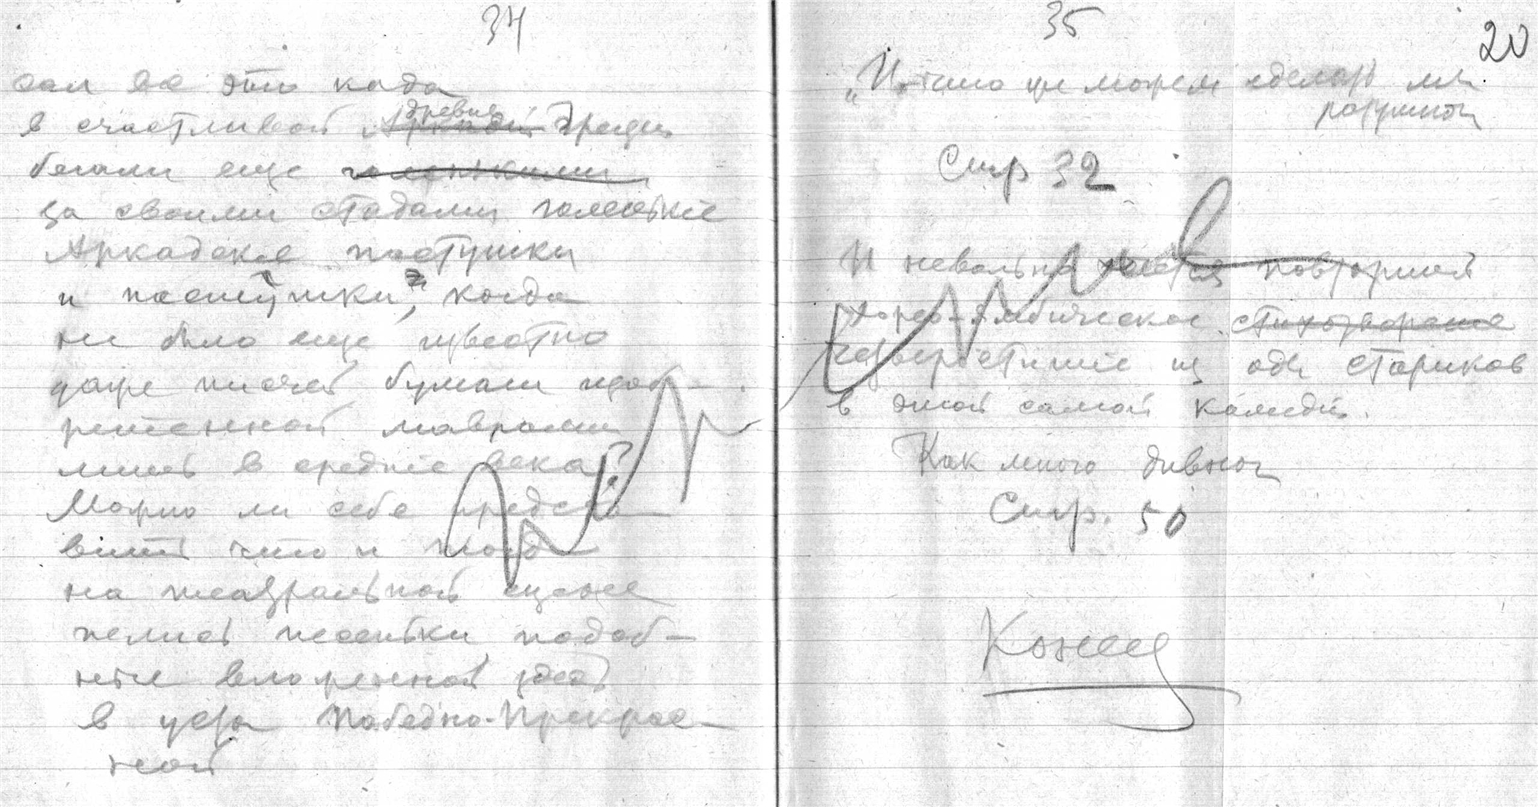 34
сал все это когда
в счастливой древней Греции
бегали еще
за своими стадами голенькие
Аркадские пастушки
и пастушки, когда
не было еще известно
даже писчей бумаги изоб-
ретенной маврами
лишь в средние века?
Можно ли себе предста-
вить что и тогда
на театральной сцене
пелись песенки, подоб-
ные вложенной здесь
в уста Победно-Прекрас-
ной
35
20
„И что же можем сделать мы
разумной
Стр 32
И невольно хочется повторить
Хорео-Ямбическое стихотворение
четверостишие из оды стариков
в этой самой комедии.
Как много дивного
Стр. 50
Конец